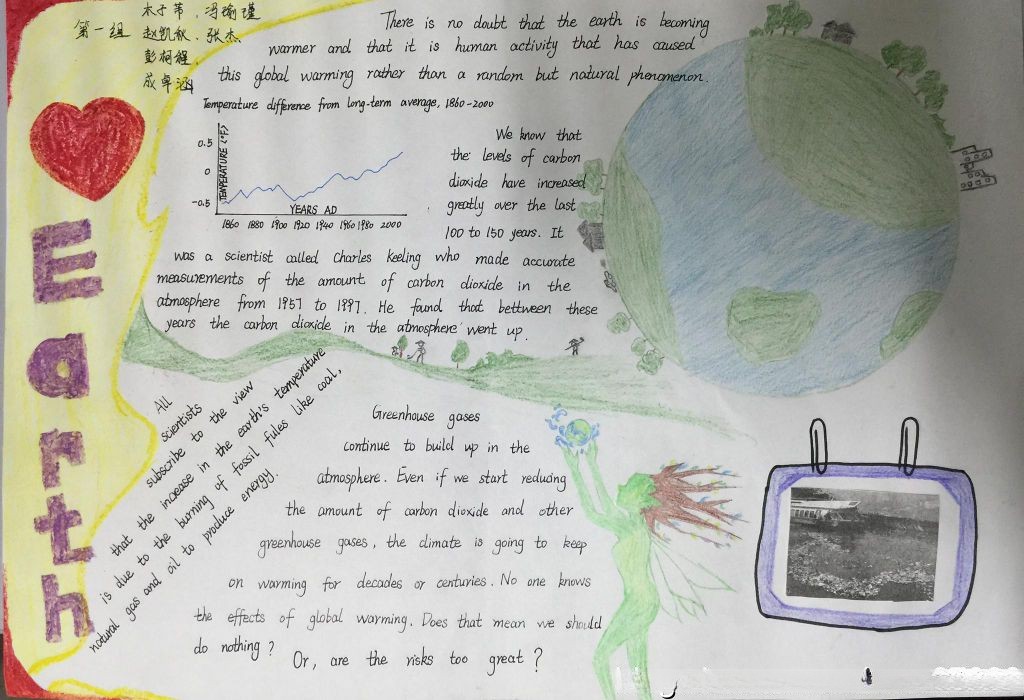 第一组
赵凯秋、张杰
彭柯程、
成卓涵
Earth
There is no doubt that the earth is becoming
warmer and that it is human activity that has caused
this global warming rather than a random but natural phenomenon.
Temperature difference from long-term average, 1860-2000
TEMPERATURE (°F)
0.5
0
-0.5
YEARS AD
1860 1880 1900 1920 1940 1960 1980 2000
We know that
the levels of carbon
dioxide have increased
greatly over the last
100 to 150 years. It
was a scientist called Charles keeling who made accurate
measurements of the amount of carbon dioxide in the
atmosphere from 1957 to 1997. He found that bettween these
years the carbon dioxide in the atmosphere went up.
All
scientists
subscribe to the view
that the increase in the earth's temperature
is due to the burning of fossil fules like coal,
natural gas and oil to produce energy.
Greenhouse gases
continue to build up in the
atmosphere. Even if we start reducing
the amount of carbon dioxide and other
greenhouse gases, the climate is going to keep
on warming for decades or centuries. No one knows
the effects of global warming. Does that mean we should
do nothing?
Or, are the risks too great?